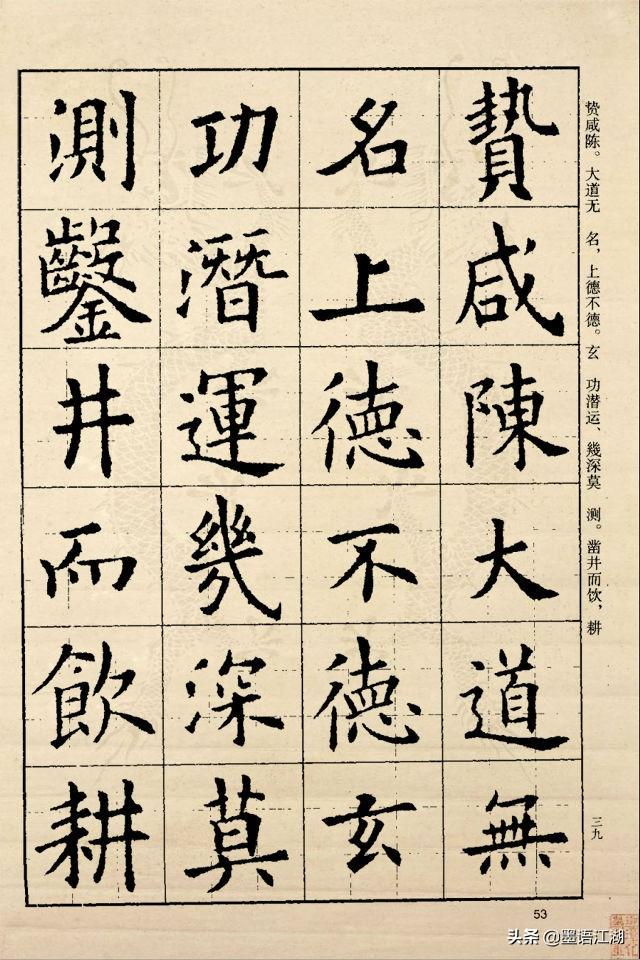 贄咸陳大道無
名上德不德玄
功潛運幾深莫
測鑿井而飲耕
贽咸陈。大道无 名，上德不德。玄 功潜运、幾深莫 测。凿井而饮，耕
三九
53
头条 @墨语江湖